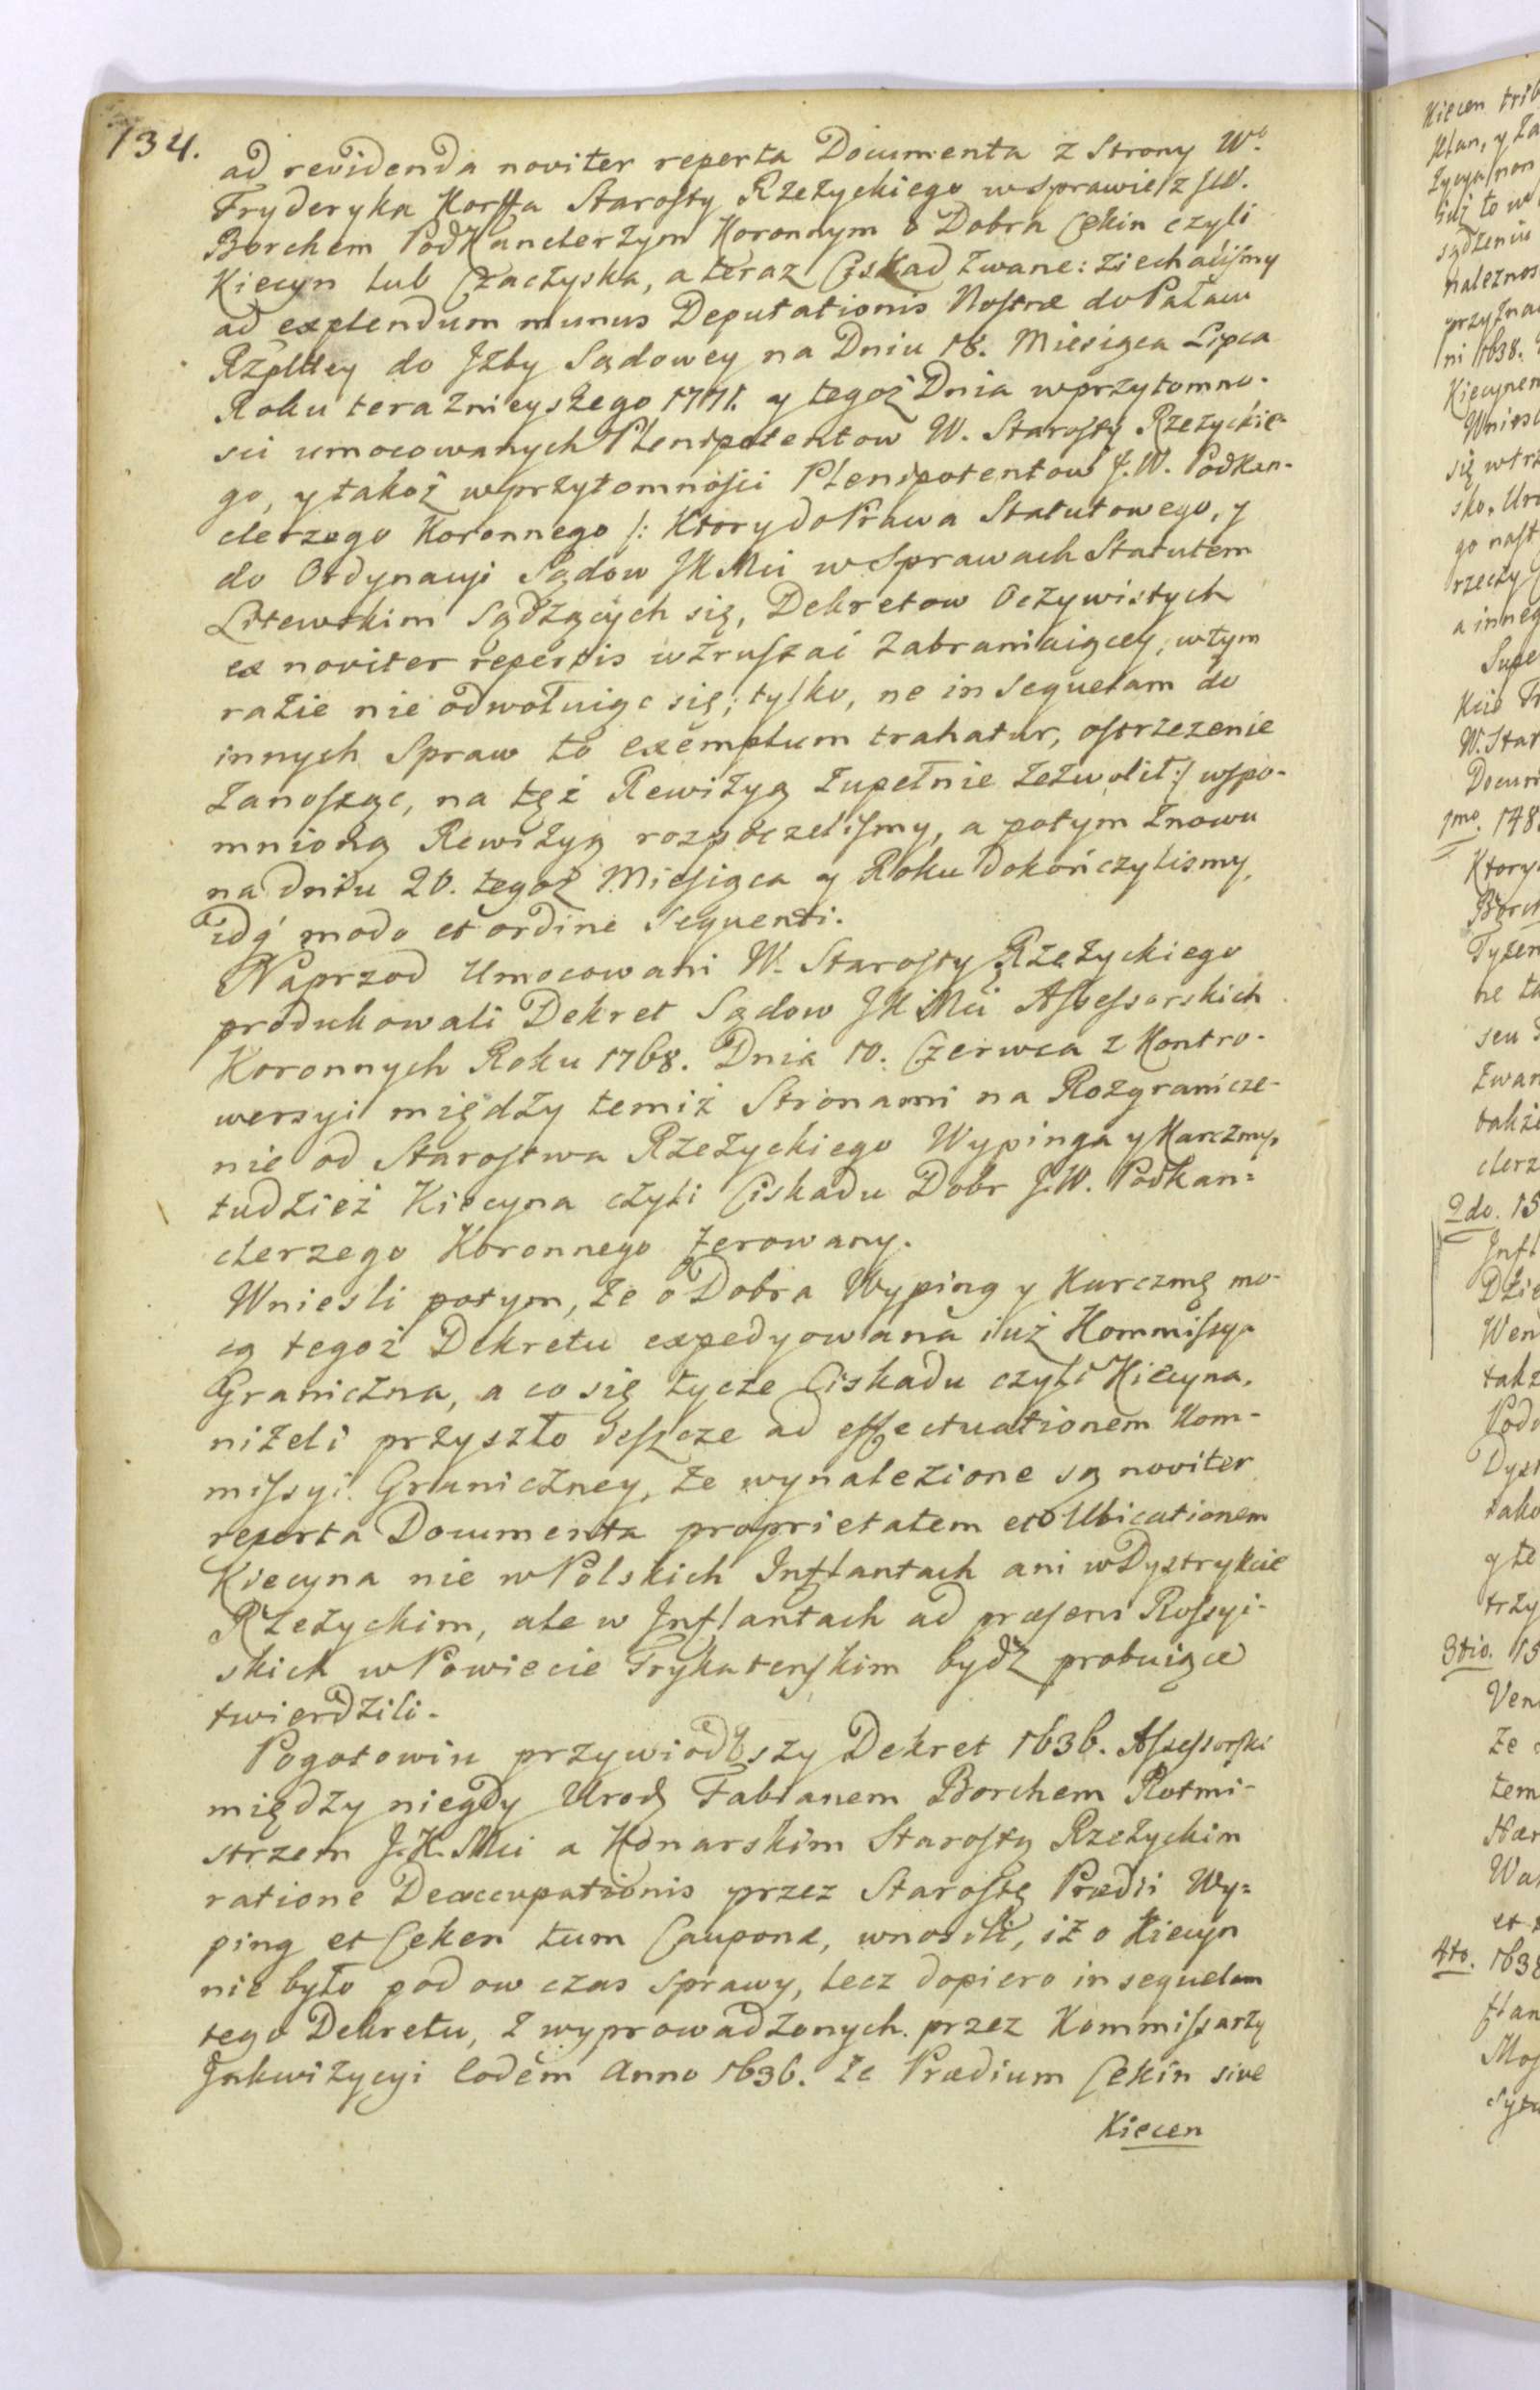 134.
ad revidenda noviter reperta Documenta z Strony W°
Fryderyka Korffa Starosty Rzeżyckiego w Sprawie z JW.
Borchem PodKanclerzym Koronnym o Dobra Cekin czyli
Kiecyn lub Czaczyska, a teraz Ciskad zwane: ziechaliśmy
ad explendum munus Deputationis Nostræ do Pałacu
Rzpltey do Jzby Sądowey na Dniu 18. Miesiąca Lipca
Roku teraznieyszego 1771. y tegoż Dnia w przytomno-
sci umocowanych Plenipotentow W. Starosty Rzeżyckie-
go, y takoż w przytomności Plenipotentow J. W. Podkan-
clerzego Koronnego /: Ktory do Prawa Statutowego, y
do Ordynacyi Sądow JK Mci w Sprawach Statutem
Litewskim Sądzących się, Dekretow Oczywistych
ex noviter repertis wzruszać zabraniaiącey, w tym
razie nie odwołuiąc się; tylko, ne in Sequelam do
innych Spraw to exemplum trahatur, ostrzezenie
zanosząc, na tęż Rewizyą zupełnie zezwolił :/ wspo-
mnioną Rewizyą rozpoczeliśmy, a potym znowu
na dniu 20. tegoż Miesiąca y Roku dokończylismy,
idq´ modo et ordine sequenti.
Naprzod Umocowani W. Starosty Rzeżyckiego
produkowali Dekret Sądow JK Mci Assessorskich
Koronnych Roku 1768. Dnia 10. Czerwca z Kontro-
wersyi między temiż Stronami na Rozgranicze-
nie od Starostwa Rzeżyckiego Wypinga y Karczmy,
tudzież Kiecyna czyli Ciskadu Dobr J. W. Podkan=
clerzego Koronnego ferowany.
Wniesli potym, że o Dobra Wyping y Karczmę mo-
cą tegoż Dekretu expedyowana iuż Kommissya
Graniczna, a co się tycze Ciskadu czyli Kiecyna,
niżeli przyszło ieszcze ad effectuationem Kom-
missyi Graniczney, że wynalezione są noviter
reperta Documenta proprietatem et Ubicationem
Kiecyna nie w Polskich Inflantach ani w Dystrykcie
Rzeżyckim, ale w Jnflantach ad præsens Rossyi-
skich w Powiecie Trykatenskim bydź probuiące
twierdzili.
Pogotowiu przywiodłszy Dekret 1636. Assessorski
między niegdy Urodz Fabianem Borchem Rotmi-
strzem J. K. Mci a Konarskim Starostą Rzeżyckim
ratione Deoccupationis przez Starostę Prædii Wy=
ping et Ceken tum Cauponæ, wnosili, iż o Kiecyn
nie było pod ow czas sprawy, lecz dopiero in sequelam
tego Dekretu, z wyprowadzonych przez Kommissarzy
Jnkwizycyi Eodem Anno 1636. że Prædium Cekin sive
Kiecen